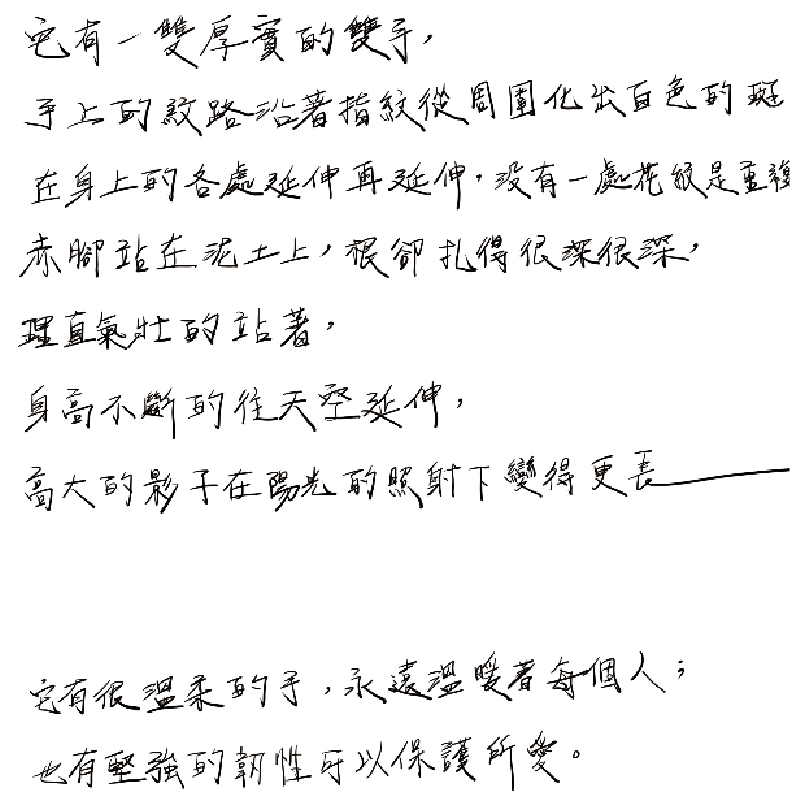 它有一雙厚實的雙手,
手上的紋路沿著指紋從周圍化出白色的斑
在身上的各處延伸再延伸。沒有一處花紋是重複
赤腳站在泥土上,根卻扎得很深很深,
理直氣壯的站著,
身高不斷的往天空延伸,
高大的影子在陽光的照射下變得更長——
它有很溫柔的手,永遠溫暖著每個人;
也有堅強的韌性可以保護所愛。